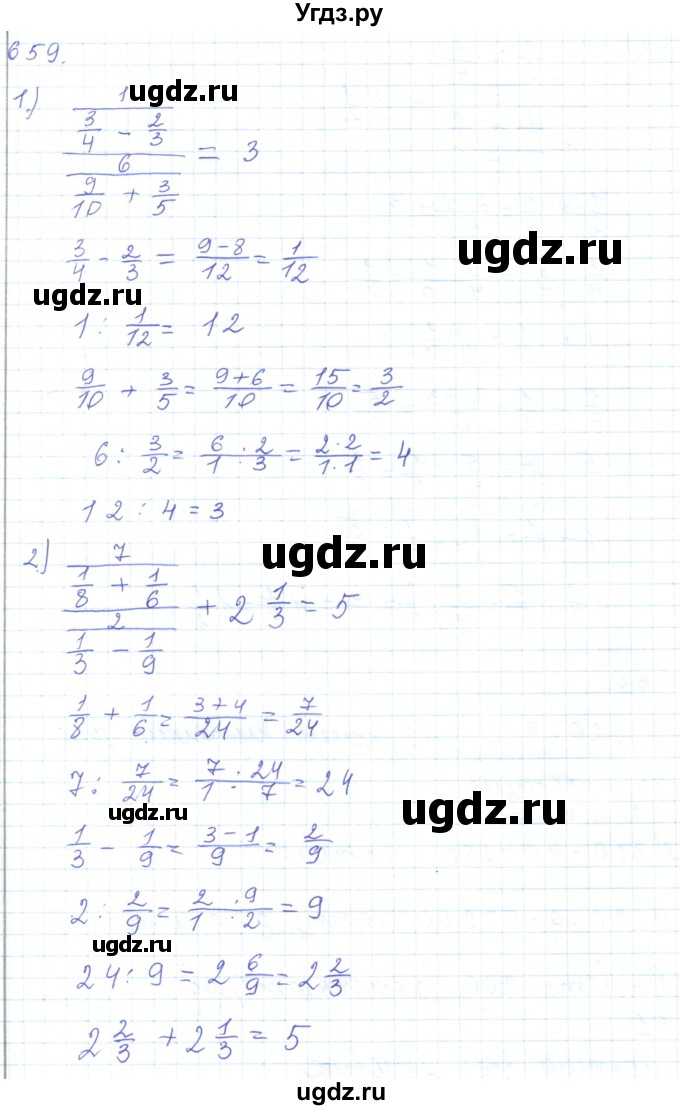 Угдз.ру
659.
ugdz.ru
1.) (1/(3/4 - 2/3)) / (6/(9/10 + 3/5)) = 3
3/4 - 2/3 = (9-8)/12 = 1/12
ugdz.ru
1 : 1/12 = 12
9/10 + 3/5 = (9+6)/10 = 15/10 = 3/2
6 : 3/2 = (6·2)/(1·3) = (2·2)/(1·1) = 4
12 : 4 = 3
ugdz.ru
ugdz.ru
2.) (7/(1/8 + 1/6)) / (2/(1/3 - 1/9)) + 2 1/3 = 5
1/8 + 1/6 = (3+4)/24 = 7/24
7 : 7/24 = (7·24)/(1·7) = 24
ugdz.ru
ugdz.ru
1/3 - 1/9 = (3-1)/9 = 2/9
2 : 2/9 = (2·9)/(1·2) = 9
ugdz.ru
24 : 9 = 2 6/9 = 2 2/3
2 2/3 + 2 1/3 = 5
ugdz.ru